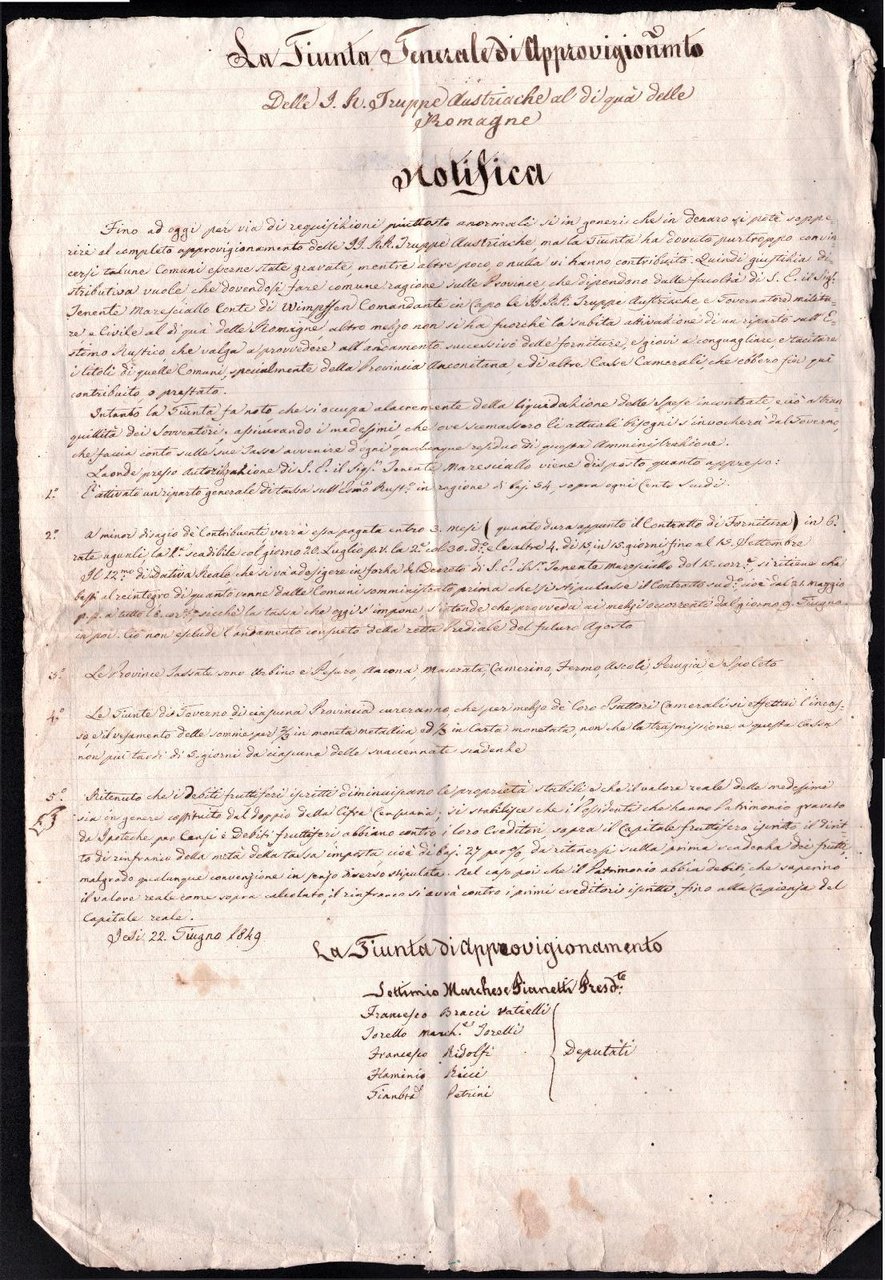 La Giunta Generale di Approvigionmto
Delle I. R. Truppe Austriache al di quà delle
Romagne
Notifica
Fino ad oggi per via di requisizioni piuttosto anormali sì in generi che in denaro si potè soppe-
rire al completo approvigionamento delle II. RR. Truppe Austriache, ma la Giunta ha dovuto purtroppo convin-
cersi talune Comuni esserne state gravate, mentre altre poco, o nulla vi hanno contribuito. Quindi giustizia di-
stributiva vuole che dovendosi fare comune ragione sulle Province, che dipendono dalle facoltà di S. E. il Sig.
Tenente Maresciallo Conte di Wimpffen Comandante in Capo le Truppe Austriache e Governatore Milita-
re e Civile al di quà delle Romagne altro mezzo non si ha fuorchè la subita attivazione di un riparto sull'E-
stimo Rustico, che valga a provvedere all'andamento successivo delle forniture, e giovi a conguagliare e tacitare
i titoli di quelle Comuni, specialmente della Provincia Anconitana e di altre Casse Camerali, che ebbero fin qui
contribuito, o prestato.
Intanto la Giunta fa noto che si occupa alacremente della liquidazione delle spese incontrate, e ciò a tran-
quillità dei Sovventori, assicurando i medesimi, che ove scemassero li attuali bisogni s'invocherà dal Governo,
che faccia conto sulle sue Tasse avvenire d'ogni qualunque residuo di questa Amministrazione.
Laonde presso autorizzazione di S. E. il Sigr. Tenente Maresciallo viene disposto quanto appresso:
1.° È attivato un riparto generale di tassa sull'Estimo Rust.° in ragione di baj. 54, sopra ogni Cento Scudi.
2.° A minor disagio de' Contribuenti verrà essa pagata entro 3. mesi (quanto dura appunto il Contratto di Fornitura) in 6.
rate eguali, la 1.a scadibile col giorno 20. Luglio p.v. la 2.a col 30. d.° e le altre 4. di 15 in 15. giorni fino al 15. Settembre
Il 12.mo di Dativa Reale, che si va ad esigere in forza del Decreto di S. E. il S.r Tenente Maresciallo del 15. corr.e, si ritiene che
basti al reintegro di quanto venne dalle Comuni somministrato prima che si stipulasse il Contratto sud.° cioè dal 21. maggio
p.p. a tutto l'8. corr.e sicchè la tassa che oggi s'impone s'intende che provveda ai mezzi occorrenti dal giorno 9. Giugno
in poi. Ciò non esclude l'andamento consueto della retta Prediale del futuro Agosto
3.° Le Province Tassate sono Urbino e Pesaro, Ancona, Macerata, Camerino, Fermo, Ascoli, Perugia e Spoleto
4.° Le Giunte di Governo di ciascuna Provincia cureranno che per mezzo de' loro Esattori Camerali si effettui l'incas-
so e il versamento delle somme per 2/3 in moneta metallica ed 1/3 in Carta monetata, non che la trasmissione a questa Cassa
non più tardi di 5. giorni da ciascuna delle suaccennate scadenze
5.° Ritenuto che i Debiti fruttiferi iscritti diminuiscano le proprietà stabili e che il valore reale delle medesime
sia in genere costituito dal doppio della Cifra Censuaria; si stabilisce che i Possidenti che hanno Patrimonio gravato
da Ipoteche per Censi e Debiti fruttiferi abbiano contro i loro Creditori sopra il Capitale fruttifero iscritto il dirit-
to di rinfranco della metà della tassa imposta cioè di baj. 27 per %, da ritenersi sulla prima scadenza dei frutti,
malgrado qualunque convenzione in senso diverso stipulata. Nel caso poi che il Patrimonio abbia debiti che superino
il valore reale come sopra calcolato, il rinfranco si avrà contro i primi creditori iscritti, fino alla Capienza del
Capitale reale.
Jesi 22. Giugno 1849
La Giunta di Approvigionamento
Settimio Marchese Pianetti Presd.te
Francesco Bracci Vatielli
Torello March.e Torelli
Francesco Ridolfi
Deputati
Flaminio Ricci
Petrini